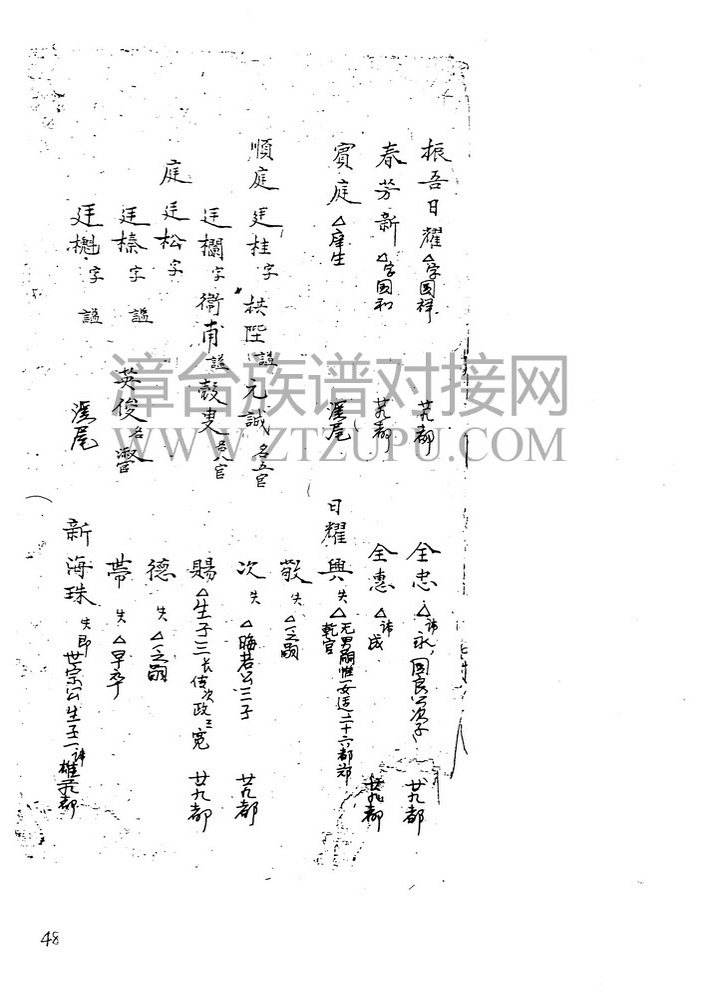 振吾日耀△字国祥 廿九都
春芳新△字国和 廿九都
賓庭△庠生 溪尾
順庭廷桂字栱陛謚元誠名五官
廷欄字衛甫謚毅叟名八官
庭廷松字
廷榛字謚英俊名瀯
廷字謚溪尾
全忠△諱永,国良公次子 廿九都
全惠△諱成 廿九都
日耀興失△无男嗣惟一女适二十六都郑乾官
敬失△之嗣
次失△晦若公三子 廿九都
賜△生子三长佳次政三宽 廿九都
德失△之嗣
带失△早卒
新海珠失即世宗公生子一諱雄 廿九都
漳台族谱对接网
WWW.ZTZUPU.COM
48